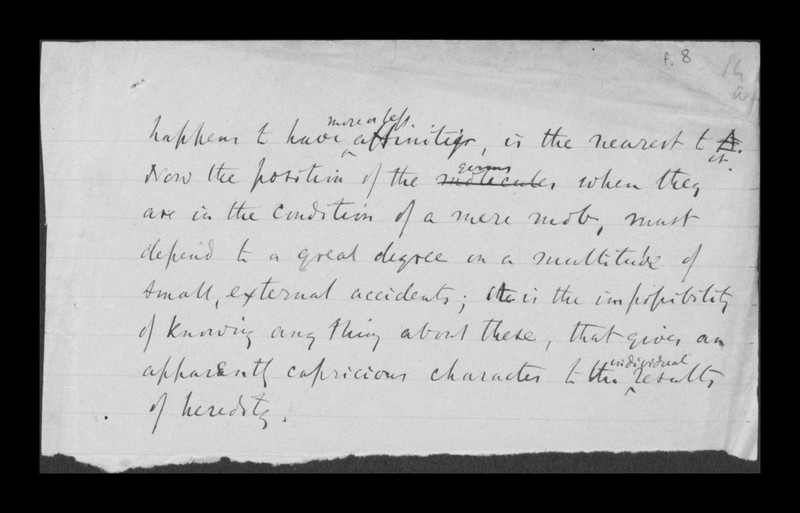 f. 8
happens to have more or less affinities, is the nearest to A. it.
Now the position of the molecules germs when they
are in the condition of a mere mob, must
depend to a great degree on a multitude of
small, external accidents; it is the impossibility
of knowing any thing about these, that gives an
apparently capricious character to the individual results
of heredity.